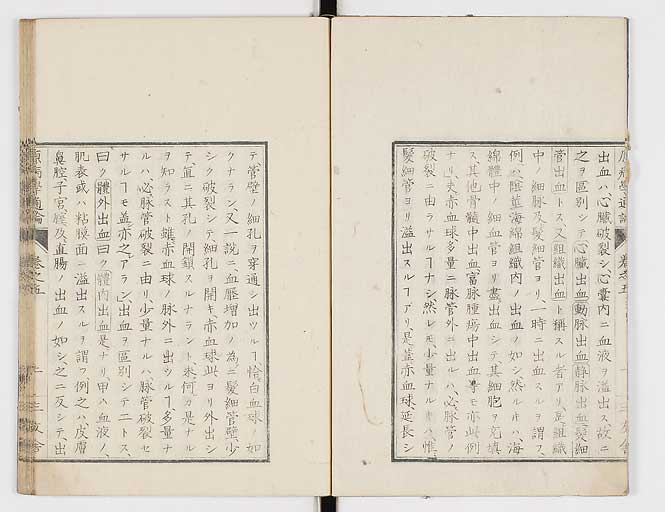 出血ハ、心臓破裂シ、心囊内ニ血液ヲ溢出ス、故ニ
之ヲ區別シテ心臓出血動脉出血靜脉出血髮細
管出血トス、又組織出血ト稱スル者アリ、是組織
中ノ細脉及髮細管ヨリ、一時ニ出血スルヲ謂フ、
例ヘハ陰莖海綿組織内ノ出血ノ如シ、然ルキハ、海
綿體中ノ細血管ヨリ盡出血シテ其細胞ニ充填
ス、其他骨髓中出血、富脉腫瘍中出血等モ亦此例
ナリ、夫赤血球多量ニ脉管外ニ出ルハ、必脉管ノ
破裂ニ由ラサルヿナシ、然レモ、少量ナルキハ、惟
髮細管ヨリ溢出スルヿアリ、是蓋赤血球延長シ
テ、管壁ノ細孔ヲ穿通シ出ツルヿ、恰白血球ノ如
クナラン、又一説ニ、血壓増加ノ為ニ、髮細管壁、少
シク破裂シテ、細孔ヲ開キ、赤血球此ヨリ外出シ
テ、直ニ其孔ノ閉鎖スルナラント、未何カ是ナル
ヲ知ラスト雖、赤血球ノ脉外ニ出ツルヿ多量ナ
ルハ、必脉管破裂ニ由リ、少量ナルハ脉管破裂セ
サルヿモ、蓋亦之アラン、出血ヲ區別シテ二トス、
曰ク體外出血、曰ク體内出血是ナリ、甲ハ血液ノ、
肌表或ハ粘膜面ニ溢出スルヲ謂フ、例之ハ皮膚
鼻腔子宮膣及直腸ノ出血ノ如シ、之ニ反シテ、出
原病學通論
卷之五
三友舎